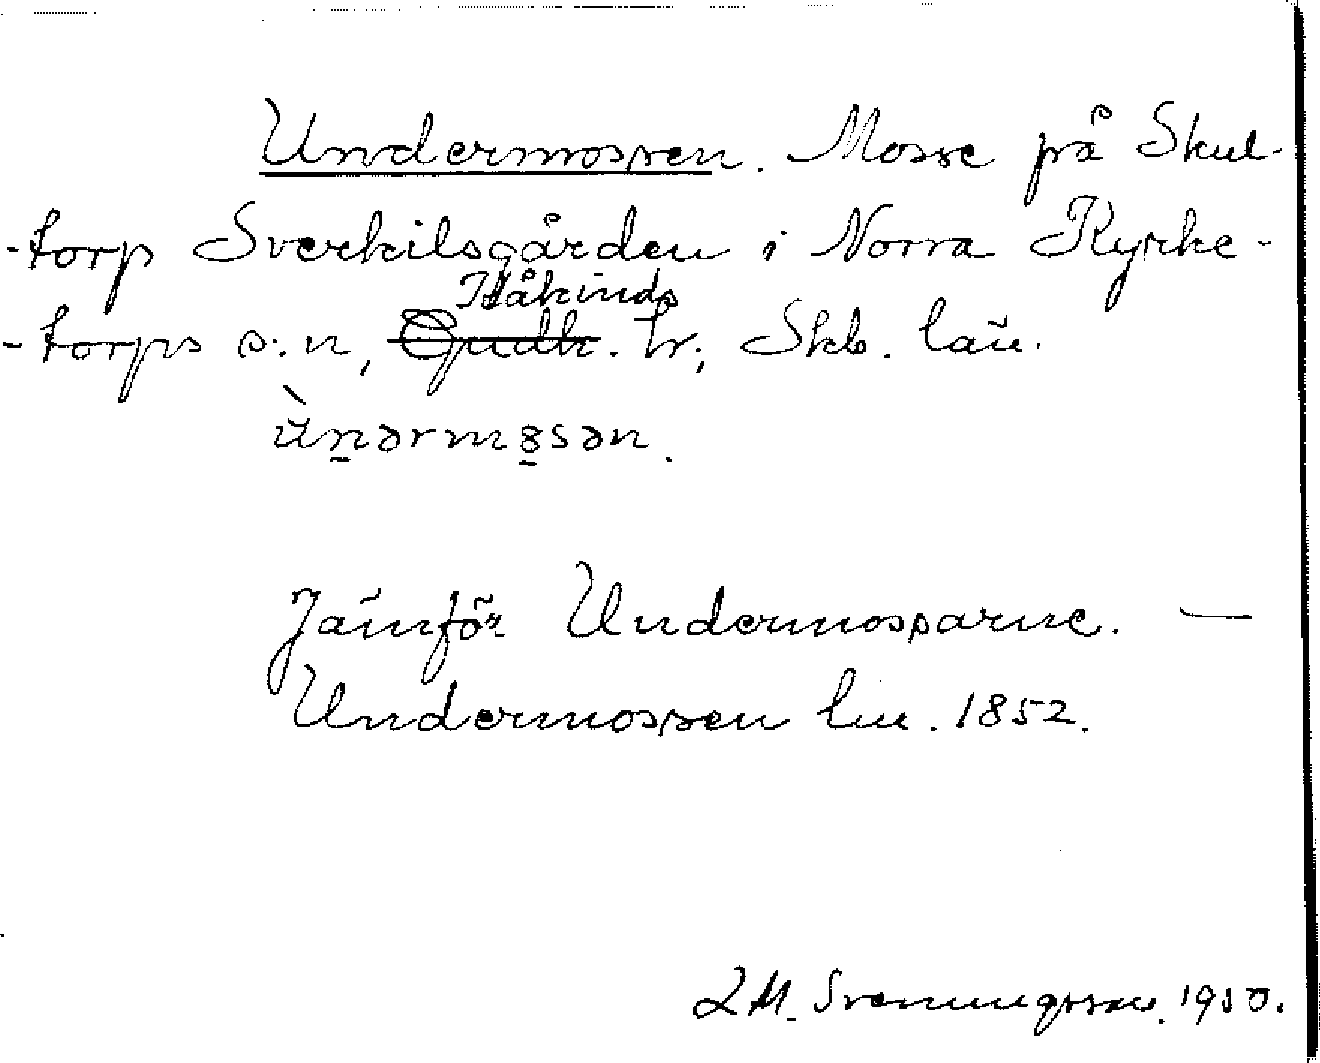 Undermossen. Mosse på Skul-
-torp Sverkilsgården i Norra Kyrke-
Kåkinds
-torps s:n, Gudh. hr; Skb. län.
ùnərmɷsən.
Jämför Undermossarne. —
Undermossen lm. 1852.
L M. Svenungsson. 1950.